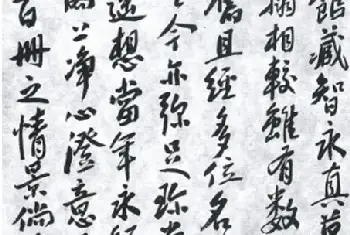 館藏智永真草
搨相較雖有数
舊且經多位名
今亦弥足珍
遥想當年永
净心澄意
百冊之情景倘